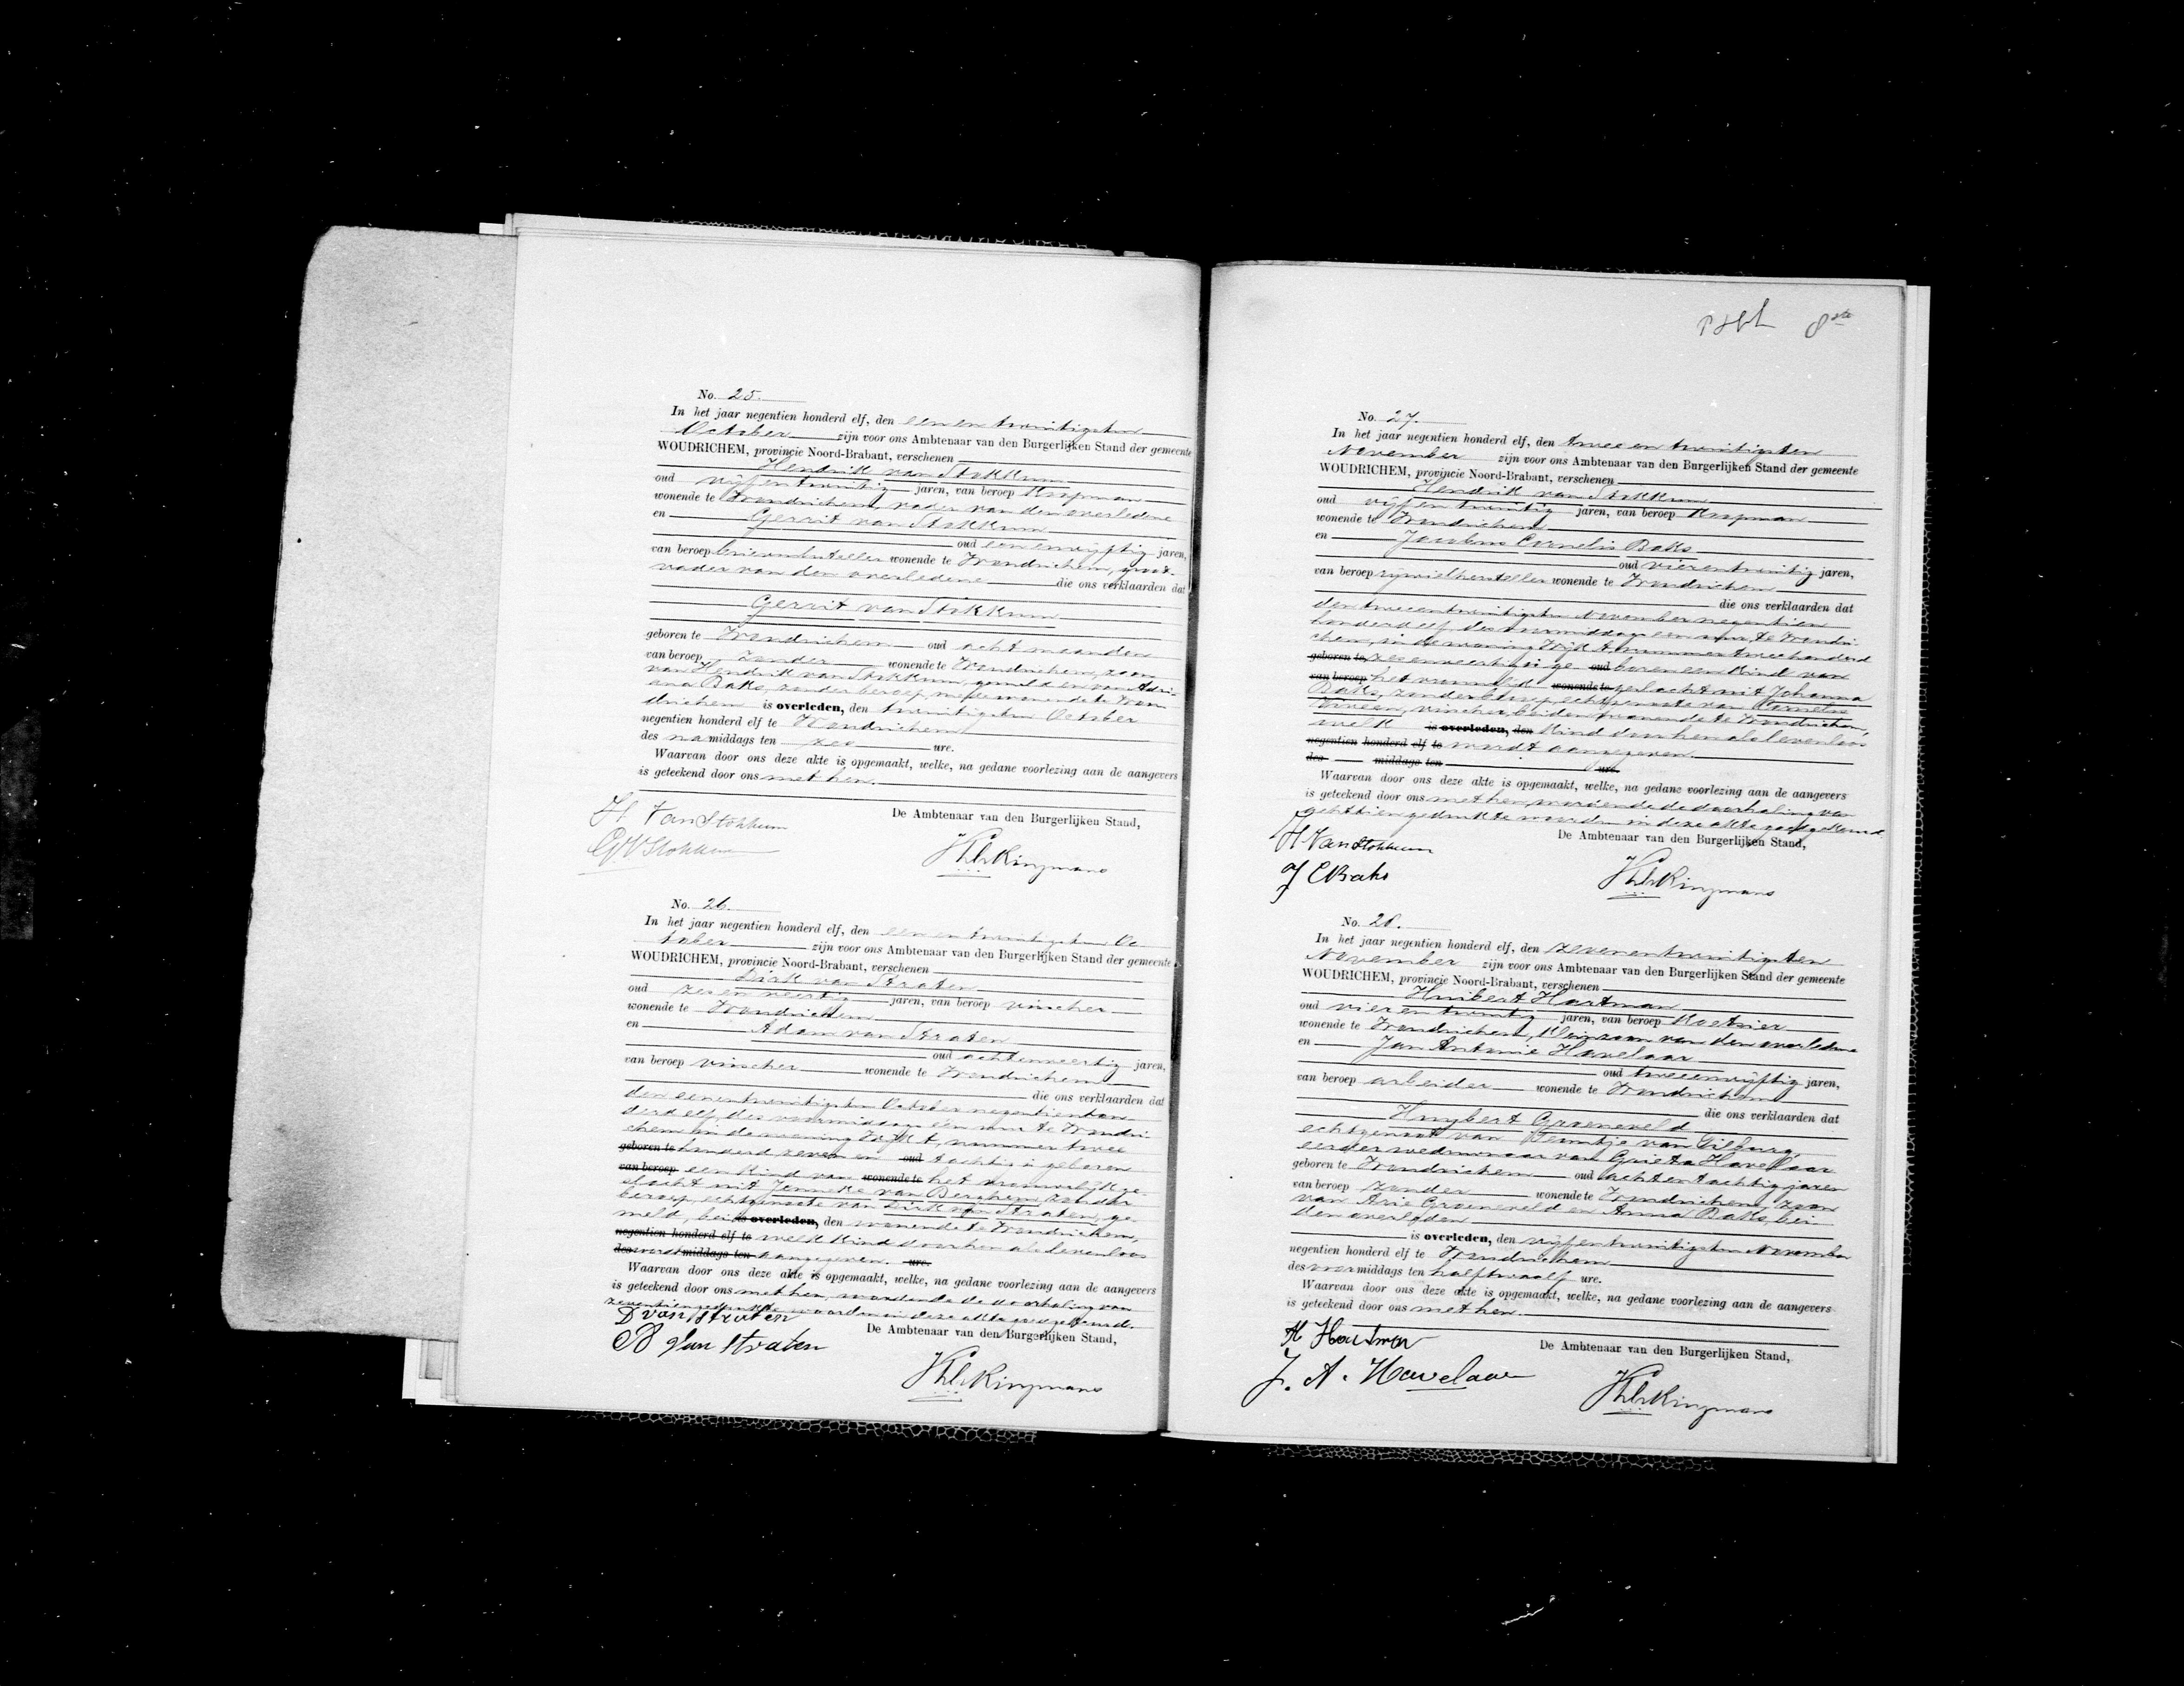 No. 25.
In het jaar negentien honderd elf, den een en twintigsten
October zijn voor ons Ambtenaar van den Burgerlijken Stand der gemeente
WOUDRICHEM, provincie Noord-Brabant, verschenen
Hendrik van Stokkum
oud vijf en twintig jaren, van beroep Koopman
wonende te Woudrichem, vader van den overledene
en Gerrit van Stokkum
oud een en vijftig jaren,
van beroep brievenbesteller wonende te Woudrichem, groot-
vader van den overledene die ons verklaarden dat
Gerrit van Stokkum
geboren te Woudrichem oud acht maanden
van beroep zonder wonende te Woudrichem, zoon
van Hendrik van Stokkum, gemeld en van Adri-
ana Baks, zonder beroep, mede wonende te Wou-
drichem is overleden, den twintigsten October
negentien honderd elf te Woudrichem
des namiddags ten zes ure.
Waarvan door ons deze akte is opgemaakt, welke, na gedane voorlezing aan de aangevers
is geteekend door ons met hen.
De Ambtenaar van den Burgerlijken Stand,
H Van Stokkum
G V Stokkum
No. 26.
In het jaar negentien honderd elf, den een en twintigsten Oc
tober zijn voor ons Ambtenaar van den Burgerlijken Stand der gemeente
WOUDRICHEM, provincie Noord-Brabant, verschenen
Dirk van Straten
oud zes en veertig jaren, van beroep visscher
wonende te Woudrichem
en Adam van Straten
oud acht en veertig jaren,
van beroep visscher wonende te Woudrichem
die ons verklaarden dat
den een en twintigsten October negentienhon-
derd elf, des voormiddags één uur te Woudri-
chem in de woning Wijk A, nummer twee
geboren te honderd zeven en oud tachtig is geboren
van beroep een kind van wonende te het vrouwelijk ge-
slacht uit Jenneke van Berghem, zonder
beroep, echtgenoote van Dirk van Straten, ge-
meld, beide is overleden, den wonende te Woudrichem,
negentien honderd elf te welk kind door hen als levenloos
des wordt middags ten aangegeven. ure.
Waarvan door ons deze akte is opgemaakt, welke, na gedane voorlezing aan de aangevers
is geteekend door ons met hen, wordende de doorhaling van
zeventien gedrukte woorden in deze akte goedgekeurd.
D van Straten
De Ambtenaar van den Burgerlijken Stand,
van Straten
8ste
No. 27.
In het jaar negentien honderd elf, den twee en twintigsten
November zijn voor ons Ambtenaar van den Burgerlijken Stand der gemeente
WOUDRICHEM, provincie Noord-Brabant, verschenen
Hendrik van Stokkum
oud vijf en twintig jaren, van beroep Koopman
wonende te Woudrichem
en Jacobus Cornelis Baks
oud vier en twintig jaren,
van beroep rijwielhersteller wonende te Woudrichem
die ons verklaarden dat
den twee en twintigsten November negentien
honderd elf, des voormiddags een uur, te Woudri-
chem, in de woning Wijk A nummer tweehonderd
geboren te zes en veertig is ge- oud boren een kind van
van beroep het vrouwelijk wonende te geslacht uit Johanna
Baks, zonder beroep, echtgenoote van Cornelis
visscher, beiden wonende te Woudrichem,
welk is overleden, den kind door hen als levenloos
negentien honderd elf te wordt aangegeven.
des middags ten ure.
Waarvan door ons deze akte is opgemaakt, welke, na gedane voorlezing aan de aangevers
is geteekend door ons met hen, wordende de doorhaling van
achttien gedrukte woorden in deze akte goedgekeurd
De Ambtenaar van den Burgerlijken Stand,
H Van Stokkum
J C Baks
No. 28.
In het jaar negentien honderd elf, den zeven en twintigsten
November zijn voor ons Ambtenaar van den Burgerlijken Stand der gemeente
WOUDRICHEM, provincie Noord-Brabant, verschenen
Huibert Hartman
oud vier en twintig jaren, van beroep Koetsier
wonende te Woudrichem, kleinzoon van den overledene
en Jan Antonie Havelaar
oud twee en vijftig jaren,
van beroep arbeider wonende te Woudrichem
die ons verklaarden dat
Huybert Groeneveld
echtgenoot van Teuntje van Tilburg,
eerder weduwnaar van Grieta Havelaar
geboren te Woudrichem oud acht en tachtig jaren
van beroep zonder wonende te Woudrichem, zoon
van Arie Groeneveld en Anna Baks, bei
den overleden
is overleden, den vijf en twintigsten November
negentien honderd elf te Woudrichem
des voormiddags ten half twaalf ure.
Waarvan door ons deze akte is opgemaakt, welke, na gedane voorlezing aan de aangevers
is geteekend door ons met hen.
De Ambtenaar van den Burgerlijken Stand,
J. A. Havelaar